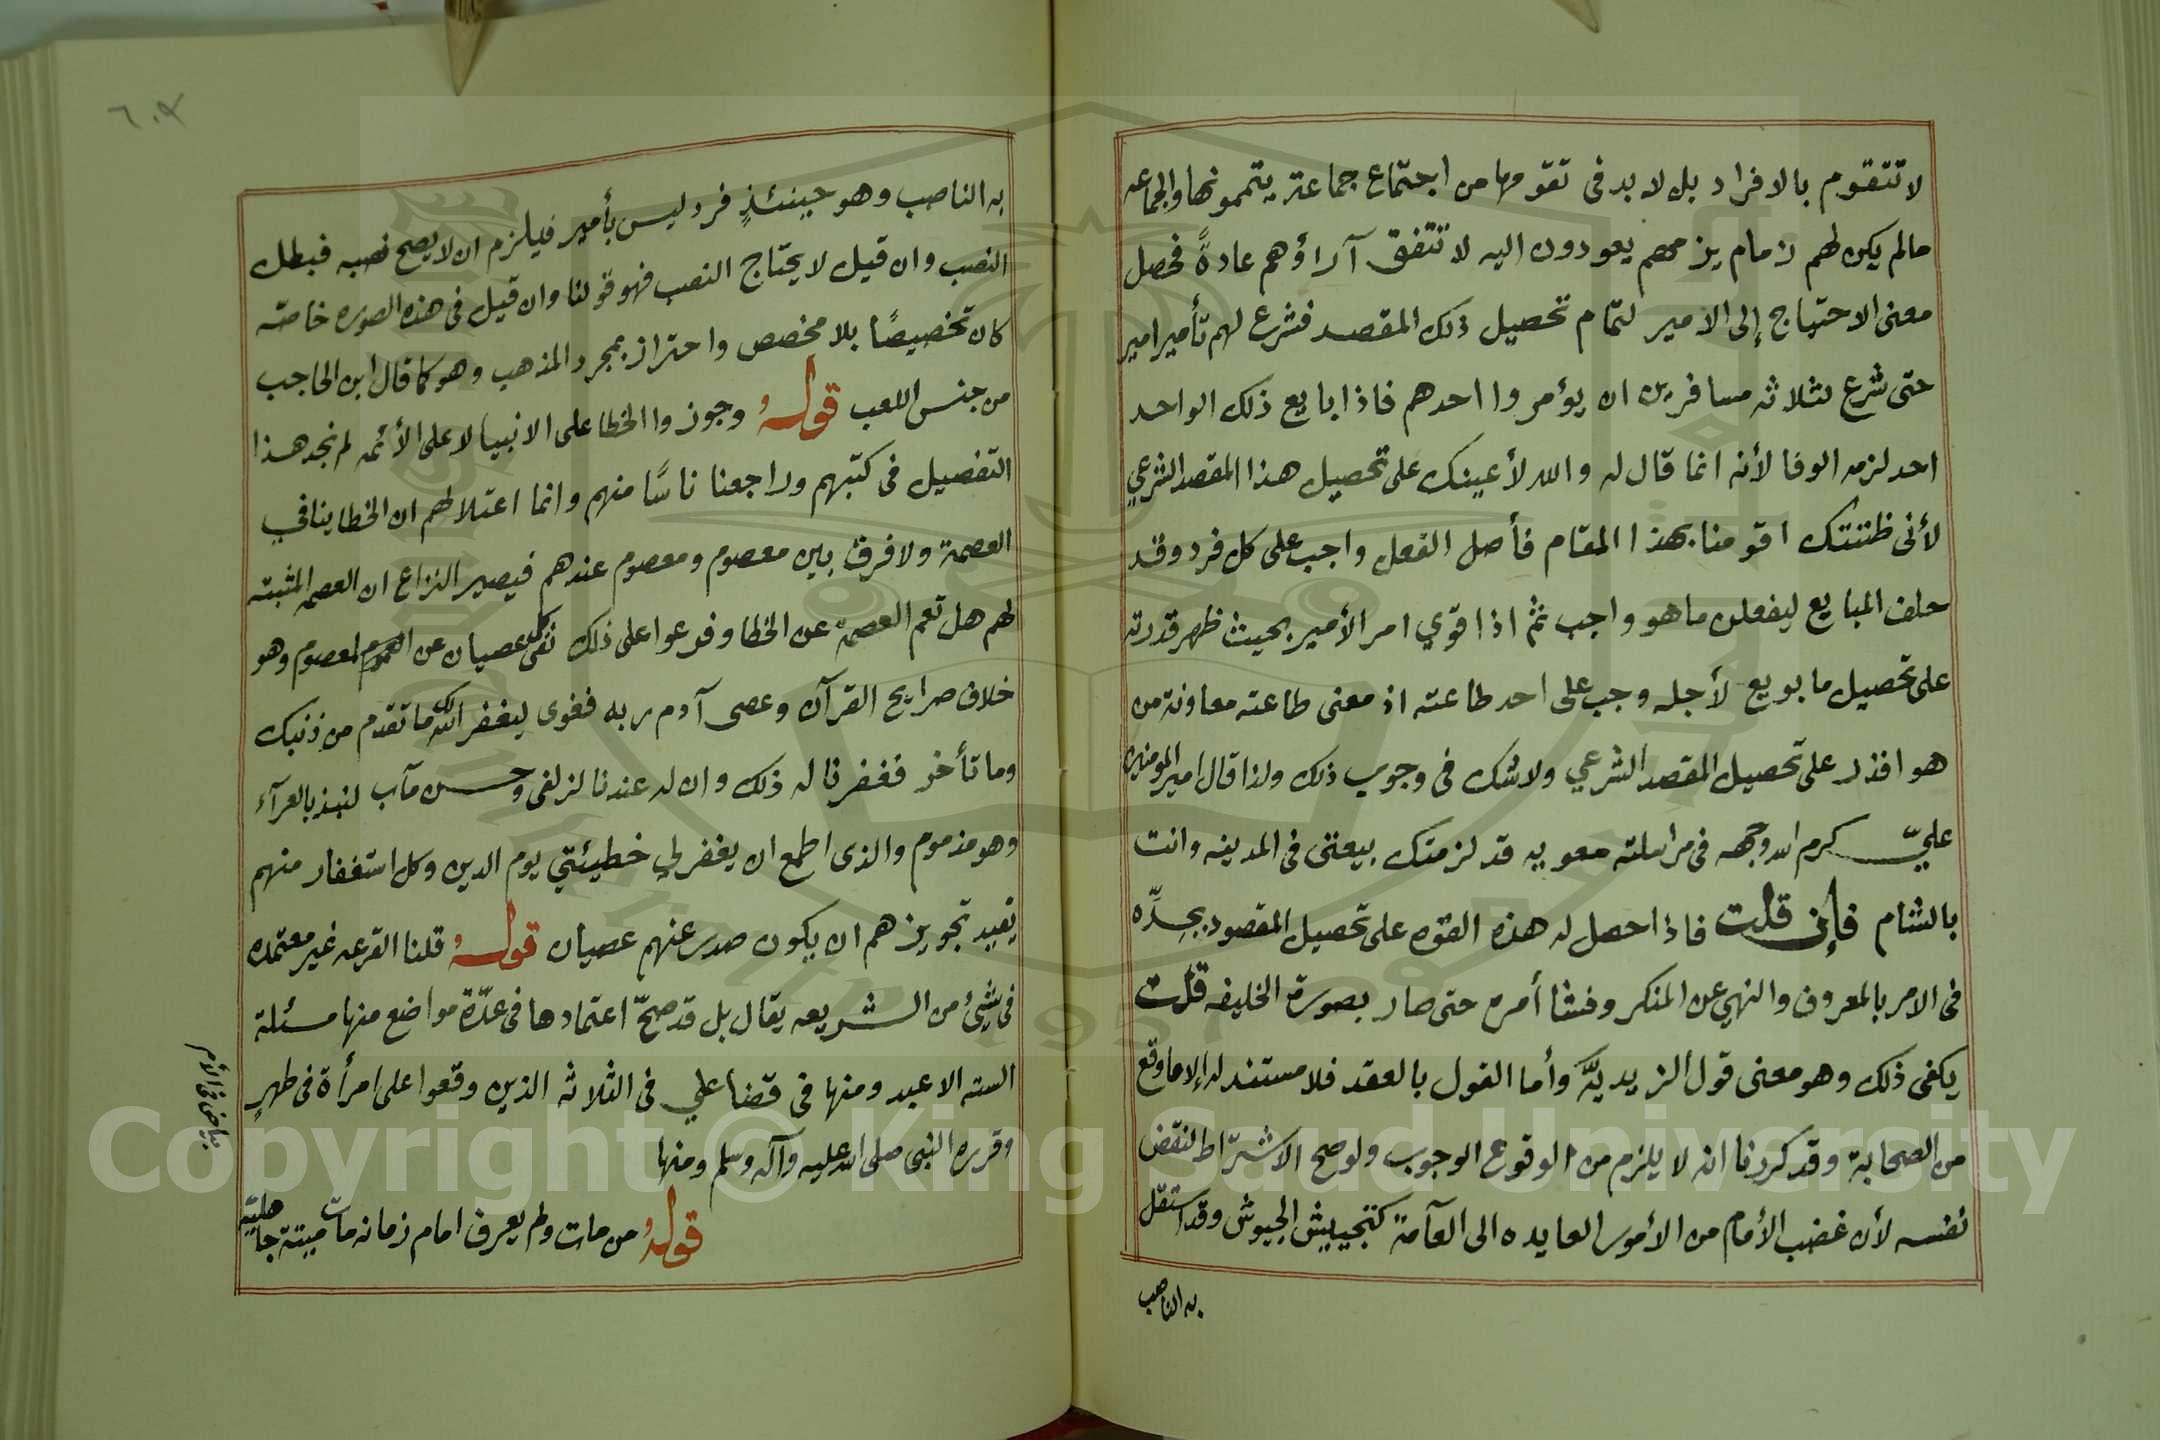 لا تتقوم بالافراد بل لا بد فى تقومها من اجتماع جماعة يتممونها والجماعه
مالم يكن لهم زمام يزمهم يعودون اليه لا تتفق آراؤهم عادةً فحصل
معنى الاحتياج إلى الامير لتمام تحصيل ذلك المقصد فشرع لهم تأمير امير
حتى شرع لثلاثه مسافرين ان يؤمروا احدهم فاذا بايع ذلك الواحد
احد لزمه الوفا لأنه انما قال له والله لأعينك على تحصيل هذا المقصد الشرعي
لأنى ظننتك اقومنا بهذا المقام فأصل الفعل واجب على كل فرد وقد
حلف المبايع ليفعلن ما هو واجب ثم اذا قوي امر الأمير بحيث ظهر قدرته
على تحصيل ما بويع لأجله وجب على احد طاعته اذ معنى طاعته معاونة من
هو اقدر على تحصيل المقصد الشرعي ولا شك فى وجوب ذلك ولذا قال امير المومنين
عليّ كرم الله وجهه فى مراسلته معويه قد لزمتك بيعتى فى المدينه وانت
بالشام فإن قلت فاذا حصل له هذه القوه على تحصيل المقصود بجدّه
فى الامر بالمعروف والنهي عن المنكر وفشا أمره حتى صار بصورة الخليفه قلت
يكفى ذلك وهو معنى قول الزيديّه وأما القول بالعقد فلا مستند له إلا ما وقع
من الصحابة وقد كررنا انه لا يلزم من الوقوع الوجوب ولو صح الاشتراط لنقض
نفسه لأن غضب الأمام من الأمور العايده الى العآمة كتجييش الجيوش وقد استقل
به الناصب
٦٠٧
به الناصب وهو حينئذٍ فرد ليس بأمير فيلزم ان لا يصح نصبه فبطل
النصب وان قيل لا يحتاج النصب فهو قولنا وان قيل فى هذه الصوره خاصّه
كان تخصيصًا بلا مخصص واحتراز بمجرد المذهب وهو كما قال ابن الحاجب
من جنس اللعب قوله وجوزوا الخطا على الانبيا لا على الأئمه لم نجد هذا
التفصيل فى كتبهم وراجعنا ناسًا منهم وانما اعتلالهم ان الخطا ينافي
العصمة ولا فرق بين معصوم ومعصوم عندهم فيصير النزاع ان العصمه المثبته
لهم هل تعم العصمة عن الخطا وفرعوا على ذلك نفى كل عصيان عن المعصوم وهو
خلاف صرايح القرآن وعصى آدم ربه فغوى ليغفر لك الله ما تقدم من ذنبك
وما تأخر فغفرنا له ذلك وان له عندنا لزلفى وحسن مآب لنبذ بالعرآء
وهو مذموم والذى اطمع ان يغفر لي خطيئتي يوم الدين وكل استغفار منهم
يفيد تجويزهم ان يكون صدر عنهم عصيان قوله قلنا القرعه غير معتمده
فى شيئ من الشريعه يقال بل قد صحّ اعتمادها فى عدّة مواضع منها مسئلة
السته الاعبد ومنها فى قضا علي فى الثلاثه الذين وقعوا على امرأة فى طهرٍ
وقرره النبى صلى الله عليه وآله وسلم ومنها
بياض فى الأم
قوله من مات ولم يعرف امام زمانه مات ميتة جاهليّه
Copyright © King Saud University